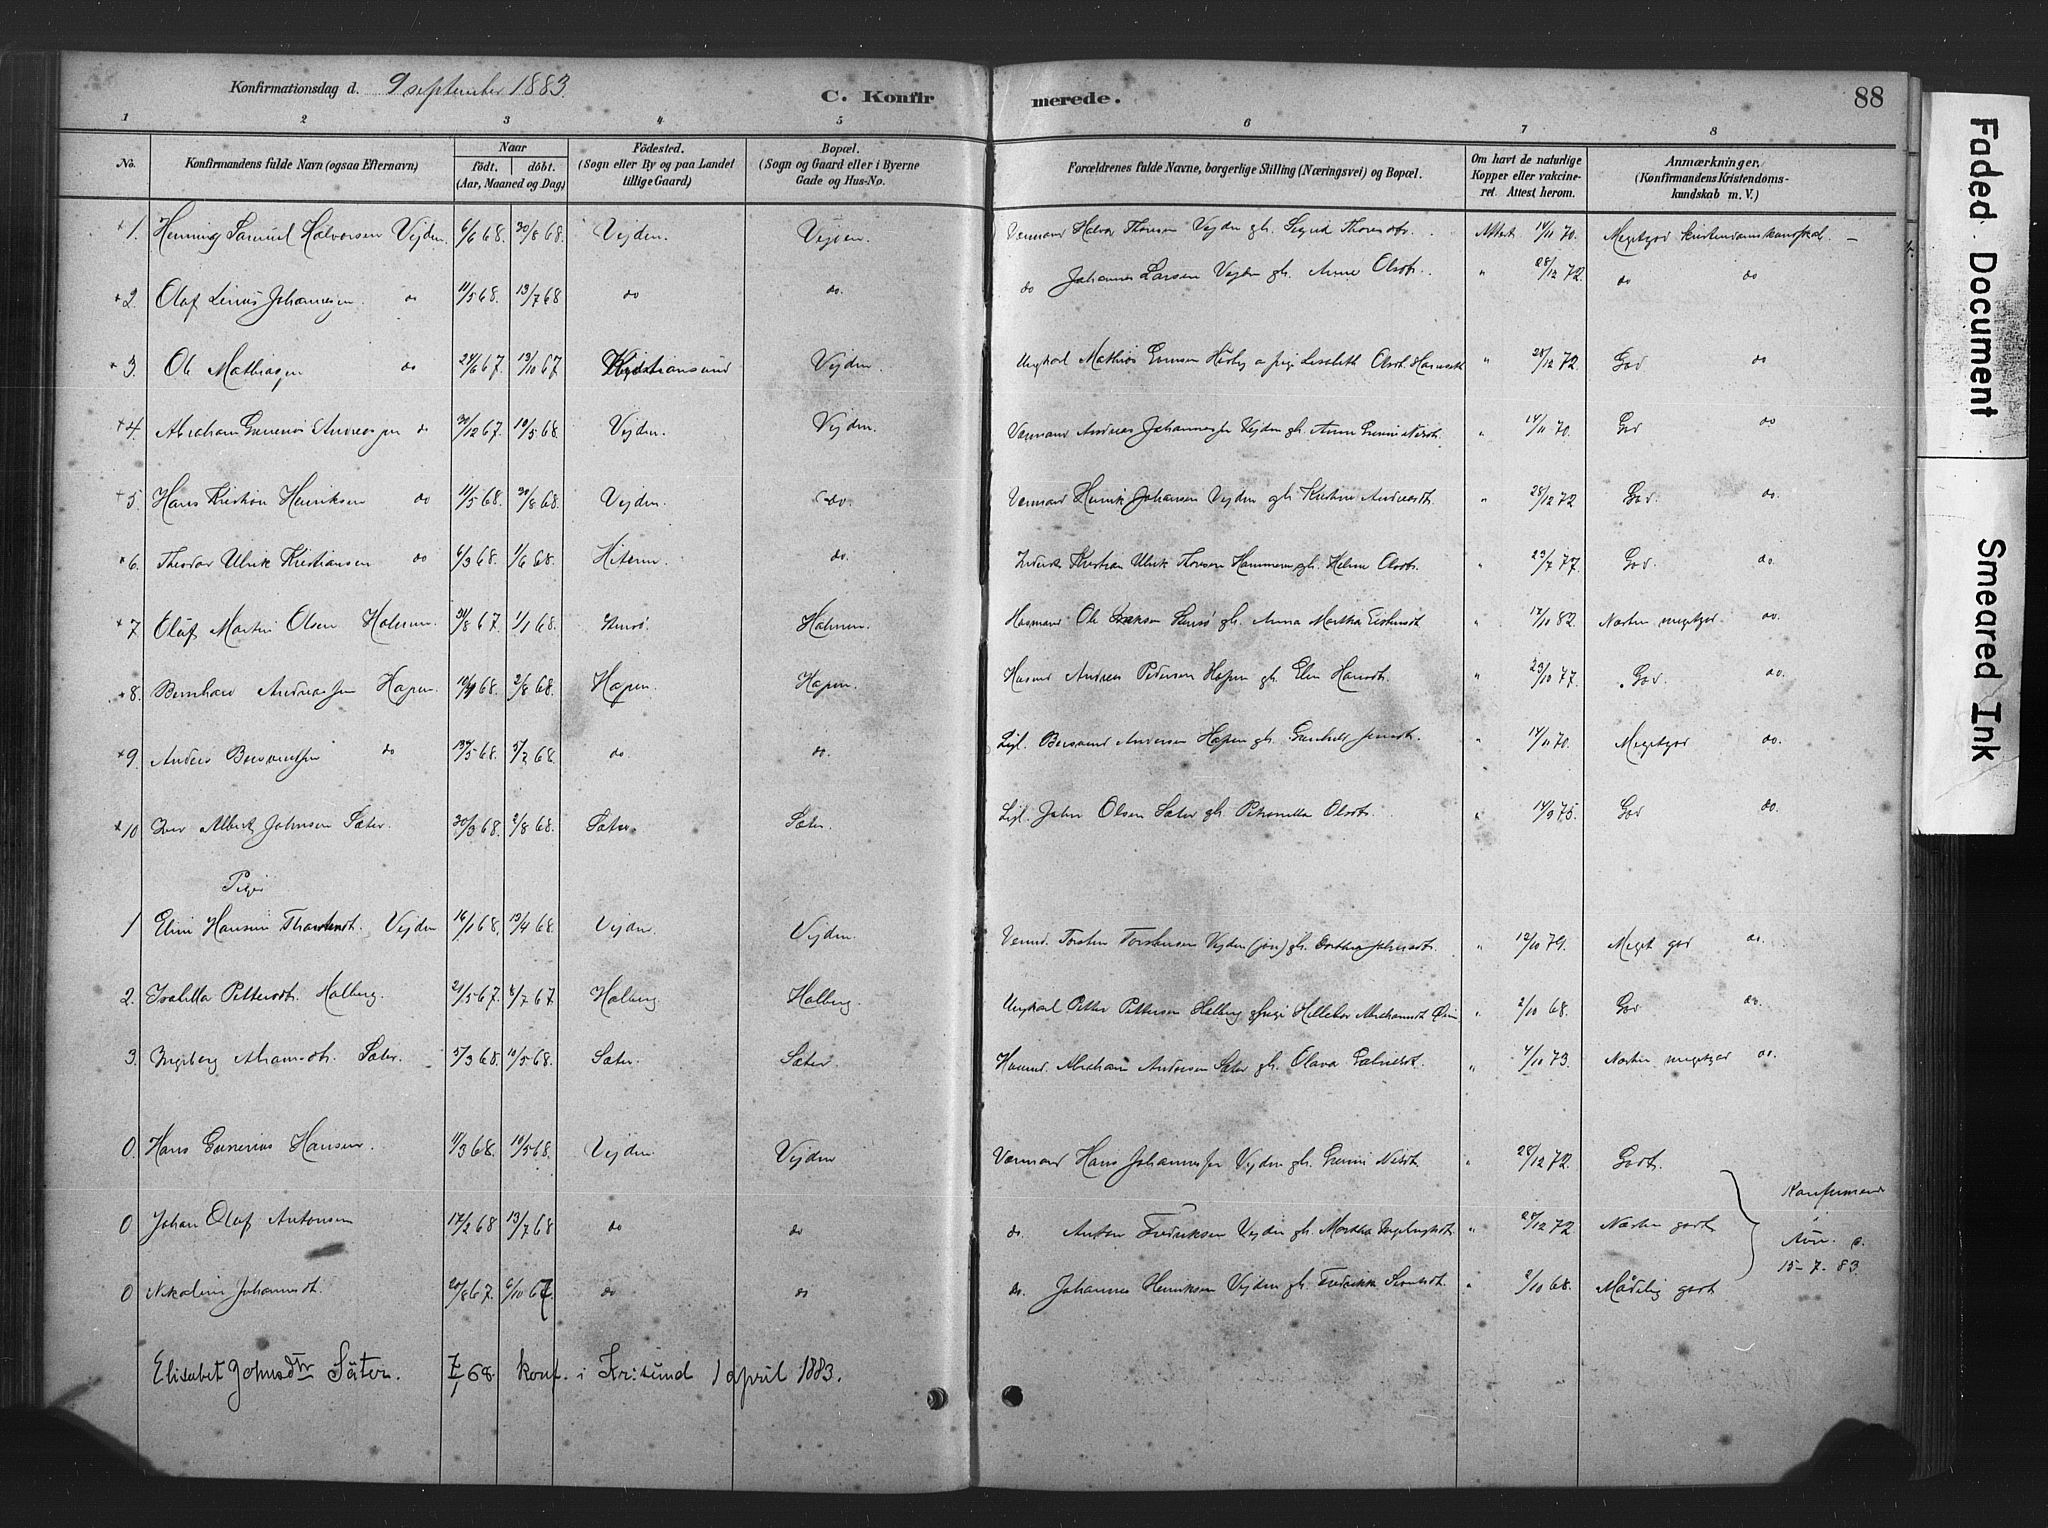 Konfirmationsdag d. 9 september 1883.
C. Konfirmerede.
88
1 2 3 4 5 6 7 8
No.
Konfirmandens fulde Navn (ogsaa Efternavn)
Naar
födt. döbt.
(Aar, Maaned og Dag)
Födested.
(Sogn eller By og paa Landet
tillige Gaard)
Bopæl.
(Sogn og Gaard eller i Byerne
Gade og Hus-No.
Forældrenes fulde Navne, borgerlige Stilling (Næringsvei) og Bopæl.
Om havt de naturlige
Kopper eller vakcine-
ret. Attest herom.
Anmærkninger,
(Konfirmandens Kristendoms-
kundskab m. V.)
+1. Henning Samuel Halvorsen Vejden 6/6 68. 30/8 68. Vejden. Vejden. Varmand Halvor Thoresen Vejden gh. Sigrid Thoresdtr. Attest 14/11 70. Megetgod kristendomskundskab.
+2. Olaf Linus Johannesen do 11/5 68. 13/7 68 do do. do Johannes Larsen Vejden gh. Anne Olsdtr. " 28/12 72. do do
+3. Ole Mathiasen do 24/6 67. 13/10 67 Kristiansund Vejden. Ungkarl Mathias o pige Lisabeth Olsdt. " 28/12 72. God do
+4. Abraham Gunerius Andreassen do 30/12 67. 10/5 68. Vejden. Vejden. Varmand Andreas Johannessen Vejden gh. Anne " 14/11 70. God do
+5. Hans Kristian Henriksen do 11/5 68. 30/8 68. Vejden. do. Varmand Henrik Johansen Vejden gh. Kristine Andreasdt. " 28/12 72 God. do.
+6. Theodor Ulrik Kristiansen do 6/3 68. 1/6 68. Hiteren. do. Kristian Ulrik Thoresen Hammeren gh. Helene Olsdtr. " 23/7 77. God. do.
+7. Oluf Martin Olsen Holmen. 31/8 67. 1/1 68. Holmen. Husmand Ole gh. Anna Martha " 17/10 82. Næsten megetgod do.
+8. Bernhard Andreassen Hopen. 68. 2/8 68. Hopen. Hopen. Husmd Andreas Pedersen Hopen gh. Elen Hansdt. " 23/10 77. God. do.
+9. Anders do 68. 5/7 68. do do. Andersen Hopen gh. Gunhild " 14/11 70. Megetgod do.
+10. Iver Albert Johnsen Sæter. 30/3 68. 2/8 68. Sæter. Sæter. John Olsen Sæter gh. Petronella Olsdt. " 14/9 75. God do.
Piger
1 Elini Hansine Vejden 16/1 68. 13/4 68. Vejden. Vejden. Torsten Torstensen Vejden gh. " 12/10 79. Meget god do.
2. Isalilla Pettersdt. Holberg. 21/5 67. 8/7 67. Holberg. Holberg. Ungkarl Petter Pettersen Holberg pige Hilleborg Abrahamsdt " 2/10 68. God do.
3. Ingeborg Abramsdtr. Sæter. 5/3 68. 10/5 68. Sæter. Sæter. Husmd. Abraham Andersen Sæter gh. Olava Gabrielsdt. " 7/10 73. Næsten megetgod do.
0. Hans Gunerius Hansen. 11/3 68. 10/5 68. Vejden Vejden Varmand Hans Johannessen Vejden gh. " 28/12 72. Godt.
0 Johan Olaf Antonsen 17/2 68 13/7 68 do do do. Anton Fredriksen Vejden gh. Martha " 27/12 72. Næsten godt
0 Nikoline Johansdt. 20/8 67. 6/10 67. do do do. Johannes Henriksen Vejden gh. Fredrikke " 2/10 68. Mådelig godt
15-7-83
Elisabet Johnsdtr Säter. 7/1 68. konf. i Kr:sund 1 april 1883.
Faded Document
Smeared Ink